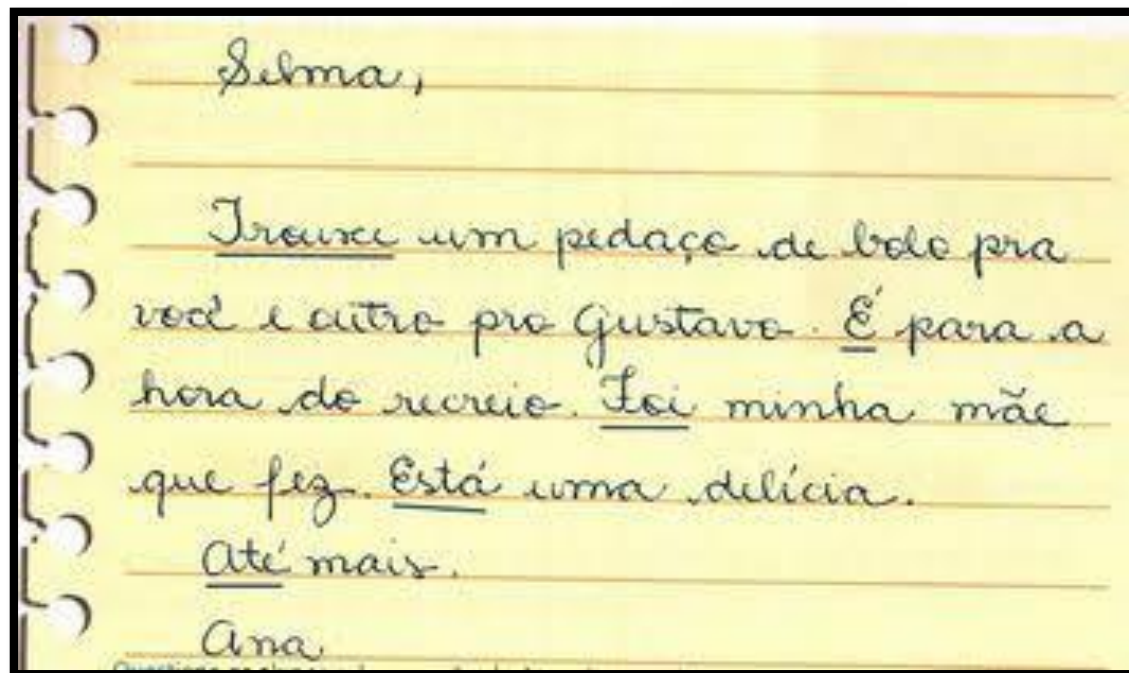 Selma,
Trouxe um pedaço de bolo pra
você e outro pro Gustavo. É para a
hora do recreio. Foi minha mãe
que fez. Está uma delícia.
Até mais.
Ana.